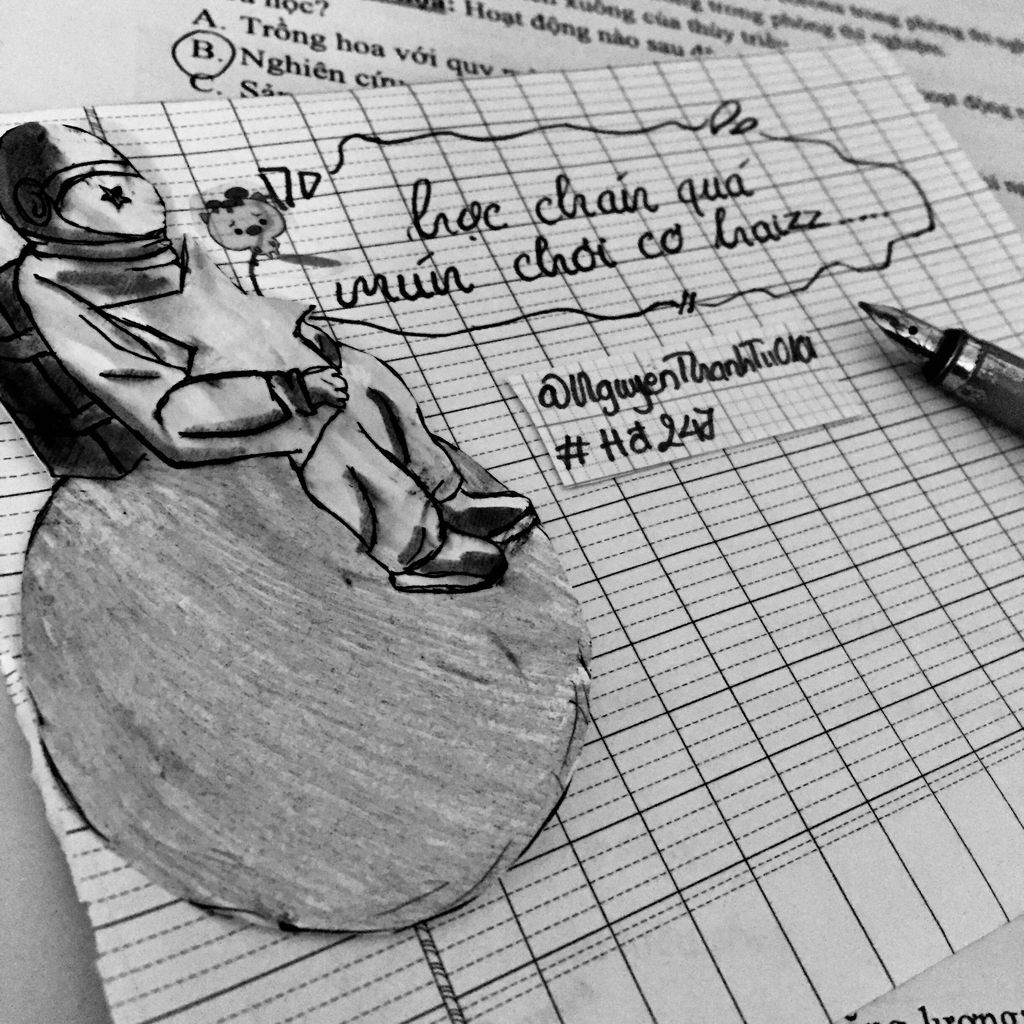 học?
A. Trồng hoa với quy
B. Nghiên cứu
C. Sả
: Hoạt động nào sau đ
xuống của thủy triều
trong phòng thí nghiệm.
trong phòng thí
hoạt động
học chán quá
muín chơi cơ haizz.....
@NguyenThanhTu0101
# Hđ 247
lượng